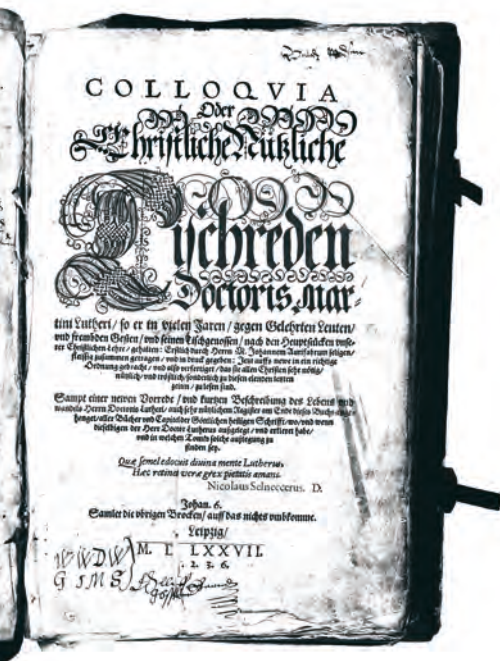 COLLOQVIA
Oder
Christliche Nützliche
Tischreden
Doctoris Mar-
tini Lutheri/ so er in vielen Jaren/ gegen Gelehrten Leuten/
vnd frembden Gesten/ vnd seinen Tischgenossen/ nach den Heuptstücken vnse-
rer Christlichen Lehre/ gehalten: Erstlich durch Herrn M. Johannem Aurifabrum seligen/
fleissig zusammen getragen/ vnd in druck gegeben: Jetzt auffs newe in ein richtige
Ordnung gebracht/ vnd also verfertiget/ das sie allen Christen sehr nötig/
nützlich/ vnd tröstlich/ sonderlich zu diesen elenden letzten
zeiten/ zu lesen sind.
Sampt einer newen Vorrede/ vnd kurtzen Beschreibung des Lebens vnd
wandels Herrn Doctoris Lutheri/ auch sehr nützlichem Register am Ende dieses Buchs ange-
henget/ aller Bücher vnd Capitel der Göttlichen heiligen Schrifft/ wo/ vnd wenn
dieselbigen der Herr Doctor Lutherus außgelegt/ vnd erkleret habe/
vnd in welchen Tomis solche außlegung zu
finden sey.
Quæ semel edocuit diuina mente Lutherus,
Hæc retinet veræ grex pietatis amans.
Nicolaus Selneccerus. D.
Johan. 6.
Samlet die vbrigen Brocken/ auff das nichts vmbkomme.
Leipzig/
M. D LXXVII.
1. 2. 3. 6.